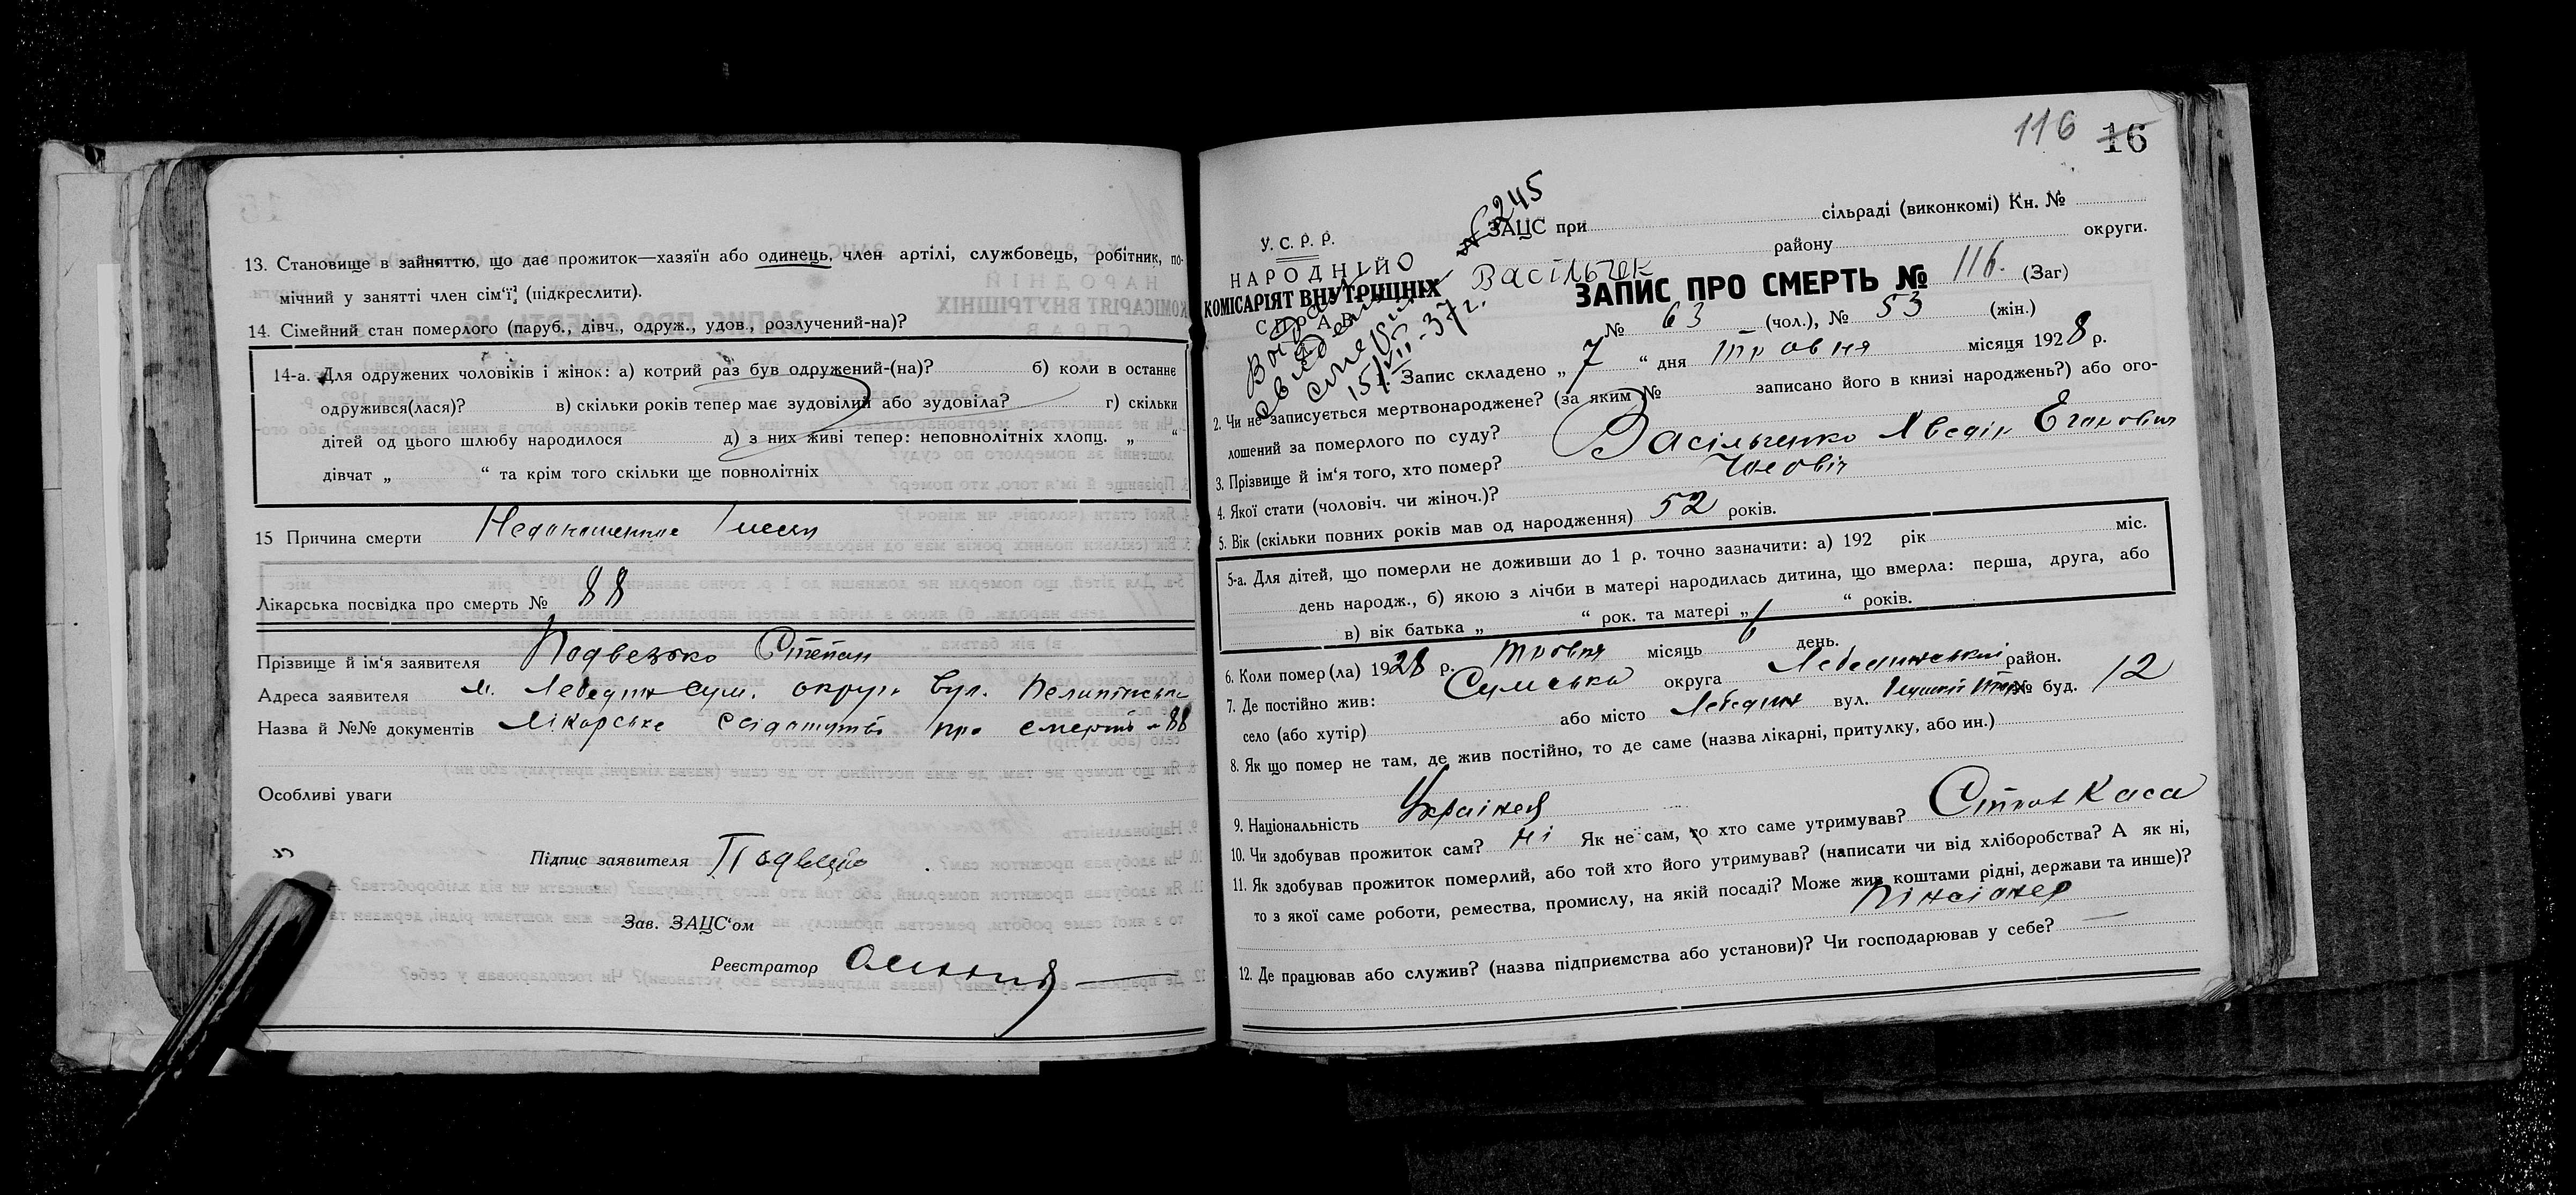 13. Становище в зайняттю, що дає прожиток—хазяїн або одинець, член артілі, службовець, робітник, по-
мічний у занятті член сім‘ї, (підкреслити).
14. Сімейний стан померлого (паруб., дівч., одруж., удов., розлучений-на)?
14-а. Для одружених чоловіків і жінок: а) котрий раз був одружений-(на)? б) коли в останнє
одружився(лася)? в) скільки років тепер має зудовілий або зудовіла? г) скільки
дітей од цього шлюбу народилося д) з них живі тепер: неповнолітніх хлопц. „ “
дівчат „ “ та крім того скільки ще повнолітніх
15 Причина смерти
Лікарська посвідка про смерть № 88
Прізвище й ім‘я заявителя Подвезько Степан
Адреса заявителя м. Лебедин Сум. округи вул.
Назва й №№ документів Лікарське про смерть № 88
Особливі уваги
Підпис заявителя
Зав. ЗАЦС‘ом
Реєстратор
116 16
У. С. Р. Р.
НАРОДНІЙ
КОМІСАРІЯТ ВНУТРІШНІХ
СПРАВ
№ 245
15/VII-37 г.
ЗАЦС при сільраді (виконкомі) Кн. №
району округи.
ЗАПИС ПРО СМЕРТЬ № 116. (Заг)
№ 63 (чол.), № 53 (жін.)
1. Запис складено „ 7 “ дня травня місяця 1928 р.
2. Чи не записується мертвонароджене? (за яким № записано його в книзі народжень?) або ого-
лошений за померлого по суду?
3. Прізвище й ім‘я того, хто помер? Васільченко Яведік Егорович
4. Якої стати (чоловіч. чи жіноч.)? Чоловіч
5. Вік (скільки повних років мав од народження) 52 років.
5-а. Для дітей, що померли не доживши до 1 р. точно зазначити: а) 192 рік міс.
день народж., б) якою з лічби в матері народилась дитина, що вмерла: перша, друга, або
в) вік батька „ “ рок. та матері „ “ років.
6. Коли помер(ла) 1928 р. травня місяць 6 день.
7. Де постійно жив: Сумська округа Лебединський район.
село (або хутір) або місто Лебедин вул. № буд. 12
8. Як що помер не там, де жив постійно, то де саме (назва лікарні, притулку, або ин.)
9. Національність Украінец
10. Чи здобував прожиток сам? Ні Як не сам, то хто саме утримував? Страх Каса
11. Як здобував прожиток померлий, або той хто його утримував? (написати чи від хліборобства? А як ні,
то з якої саме роботи, ремества, промислу, на якій посаді? Може жив коштами рідні, держави та инше)?
Пінсіонер
12. Де працював або служив? (назва підприємства або установи)? Чи господарював у себе? —